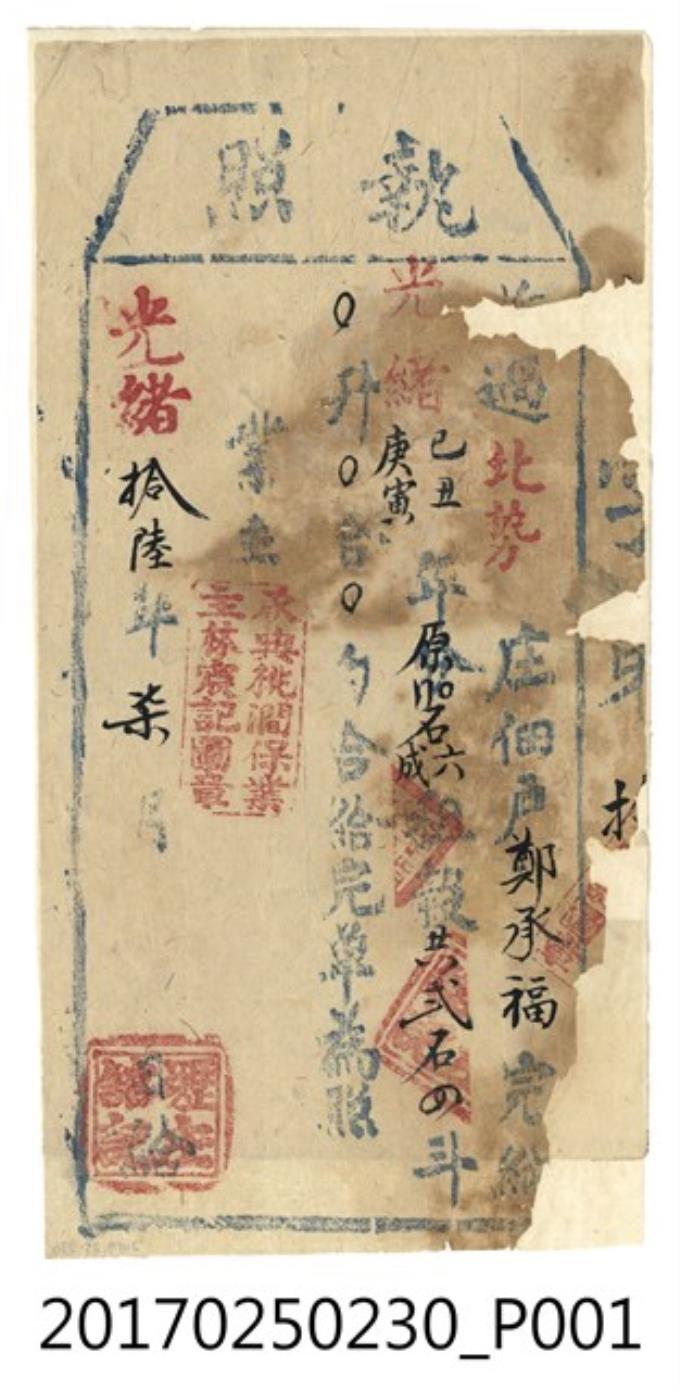 執照
字 拾
過北勢庄佃戶鄭承福完納
光緒己丑庚寅年原四石六成租穀共弍石四斗
0升0合0勺合給完單為照
業主
承典桃澗保業
主林賓記圖章
光緒拾陸年柒月 日給
20170250230_P001